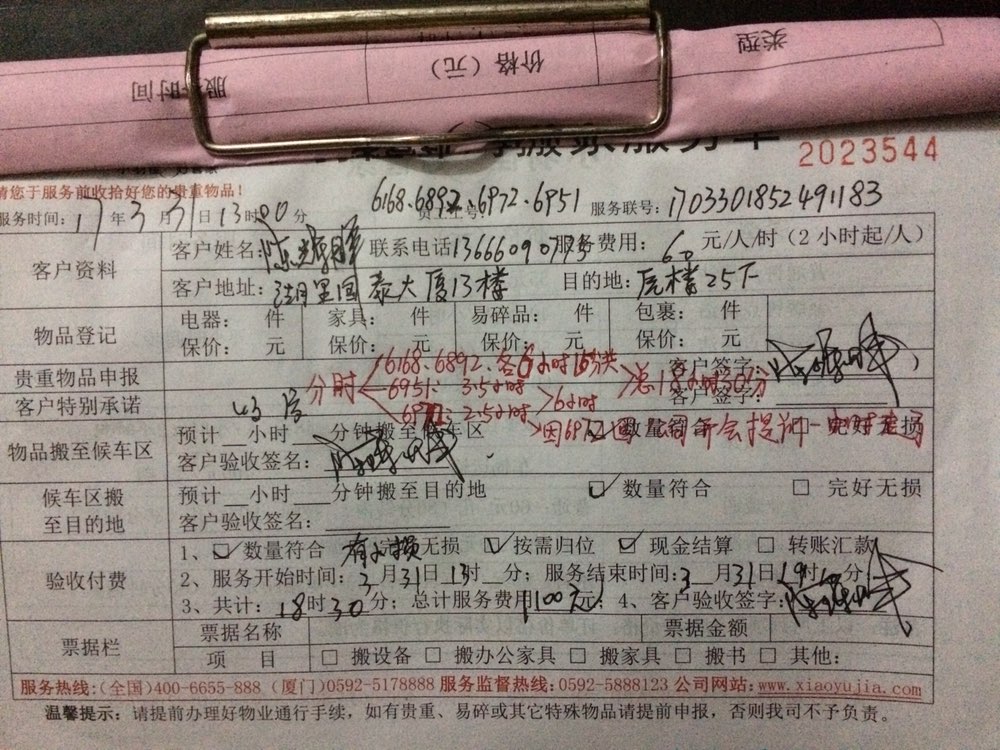 类型
价格（元）
服务时间
2023544
请您于服务前收拾好您的贵重物品！
6168.6892.6972.6951
服务时间：17年3月31日13时00分
服务联号：170330185249１183
客户资料
客户姓名：陈
联系电话
服务费用：60元/人/时（2小时起/人）
客户地址：湖里国泰大厦13楼
目的地：虎楼25下
物品登记
电器： 件
家具： 件
易碎品： 件
包裹： 件
保价： 元
保价： 元
保价： 元
保价： 元
贵重物品申报
客户签字：
客户特别承诺
客户签字：
分时
6168.6892.各6小时
6951: 3.5小时
2.5小时
>6小时
物品搬至候车区
预计 小时 分钟搬至候车区
数量符合
完好无损
客户验收签名：
候车区搬至目的地
预计 小时 分钟搬至目的地
☑ 数量符合 □ 完好无损
客户验收签名：
验收付费
1、☑ 数量符合 无损 ☑ 按需归位 ☑ 现金结算 □ 转账汇款
2、服务开始时间：3月31日13时 分；服务结束时间：3月31日19时 分
3、共计：18时30分；总计服务费用1100元；4、客户验收签字：
票据栏
票据名称
票据金额
项 目
□ 搬设备 □ 搬办公家具 □ 搬家具 □ 搬书 □ 其他：
服务热线：(全国)400-6655-888 (厦门)0592-5178888 服务监督热线：0592-5888123 公司网站：www.xiaoyujia.com
温馨提示：请提前办理好物业通行手续，如有贵重、易碎或其它特殊物品请提前申报，否则我司不予负责。